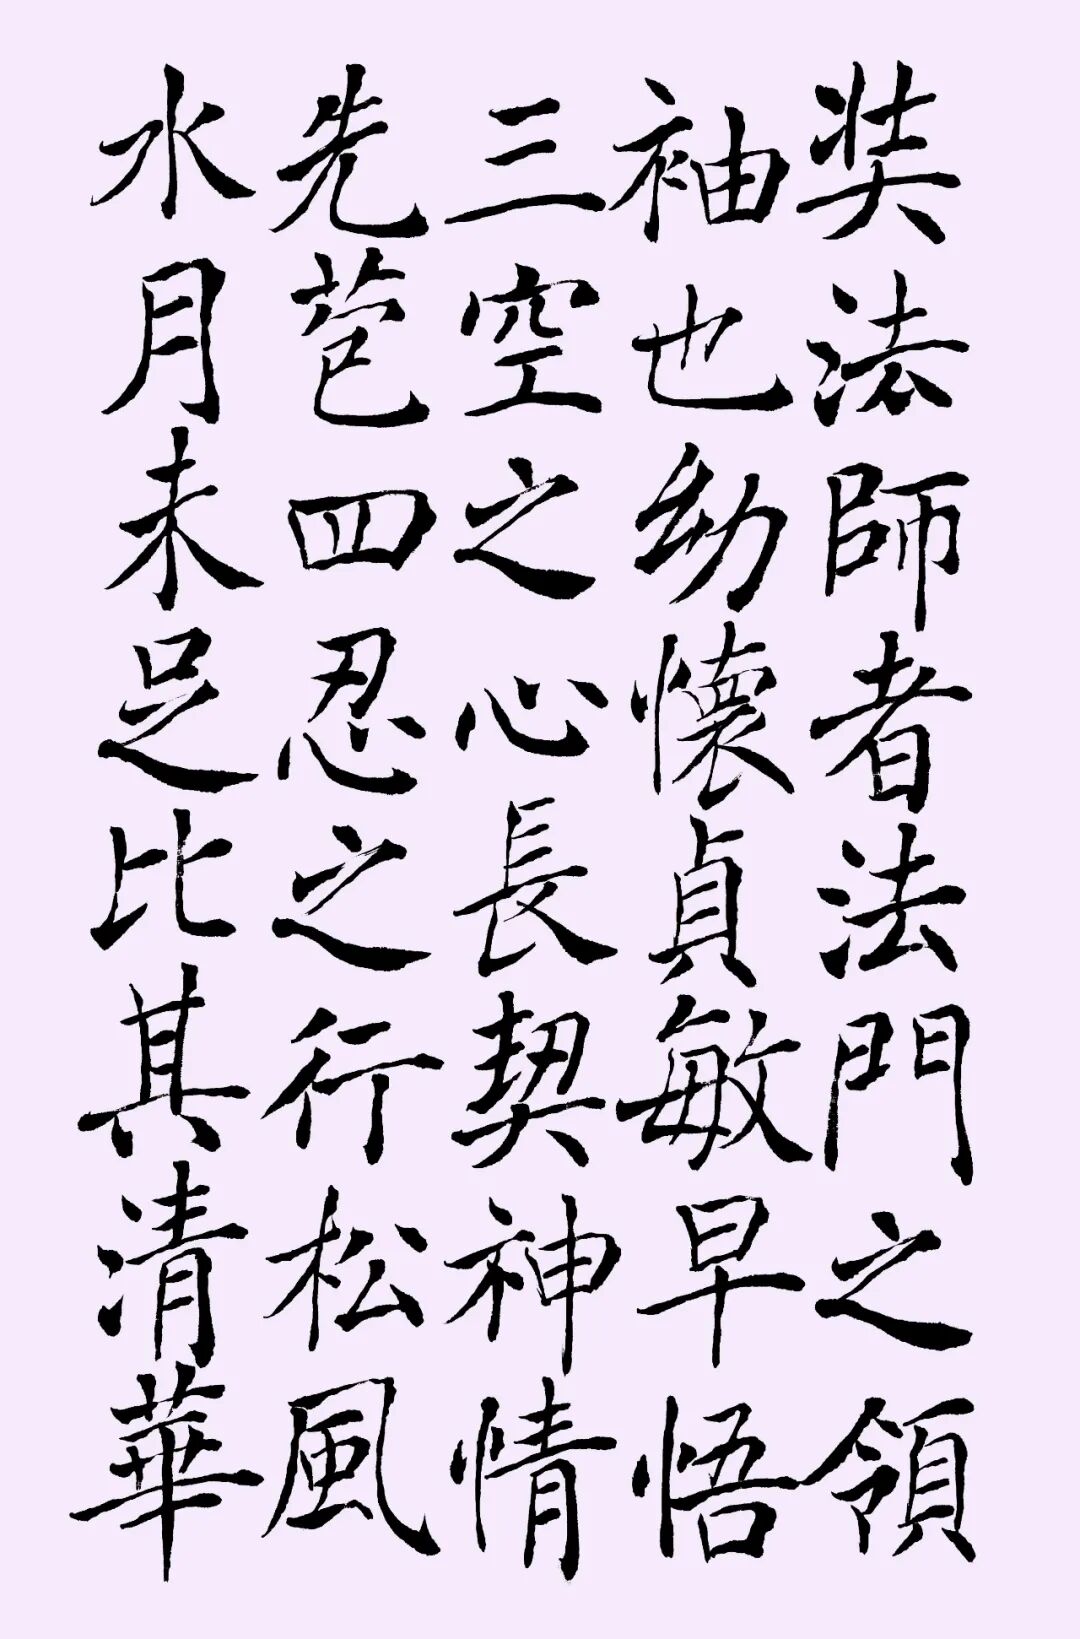 奘法師者法門之領
袖也幼懷貞敏早悟
三空之心長契神情
先苞四忍之行松風
水月未足比其清華